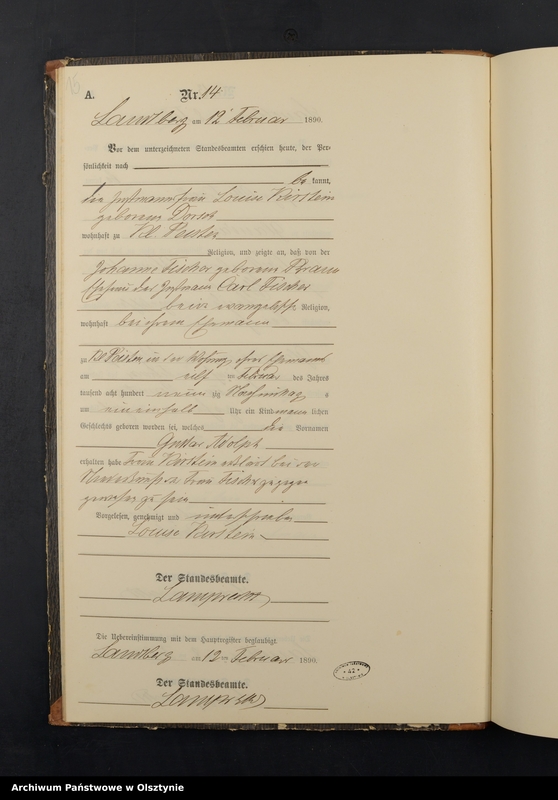 A. Nr. 14
am 12ten Februar 1890.
Vor dem unterzeichneten Standesbeamten erschien heute, der Per-
sönlichkeit nach
be kannt,
die Louise Kirstein
geborene Dorsch
wohnhaft zu Kl. Peisten
Religion, und zeigte an, daß von der
Johanne Fischer geborene
Ehefrau des Carl Fischer
beide evangelischer Religion,
wohnhaft bei ihrem Ehemann
zu Kl Peisten in der Wohnung ihres Ehemanns
am elf ten Februar des Jahres
tausend acht hundert neun zig Nachmittag s
um ein einhalb Uhr ein Kind männ lichen
Geschlechts geboren worden sei, welches die Vornamen
Gustav Adolph
erhalten habe Frau Kirstein erklärt bei der
Niederkunft der Frau Fischer zugegen
gewesen zu sein
Vorgelesen, genehmigt und unterschrieben
Louise Kirstein
Der Standesbeamte.
Lamprecht
Die Uebereinstimmung mit dem Hauptregister beglaubigt.
am 12ten Februar 1890.
Der Standesbeamte.
Lamprecht
Archiwum Państwowe w Olsztynie